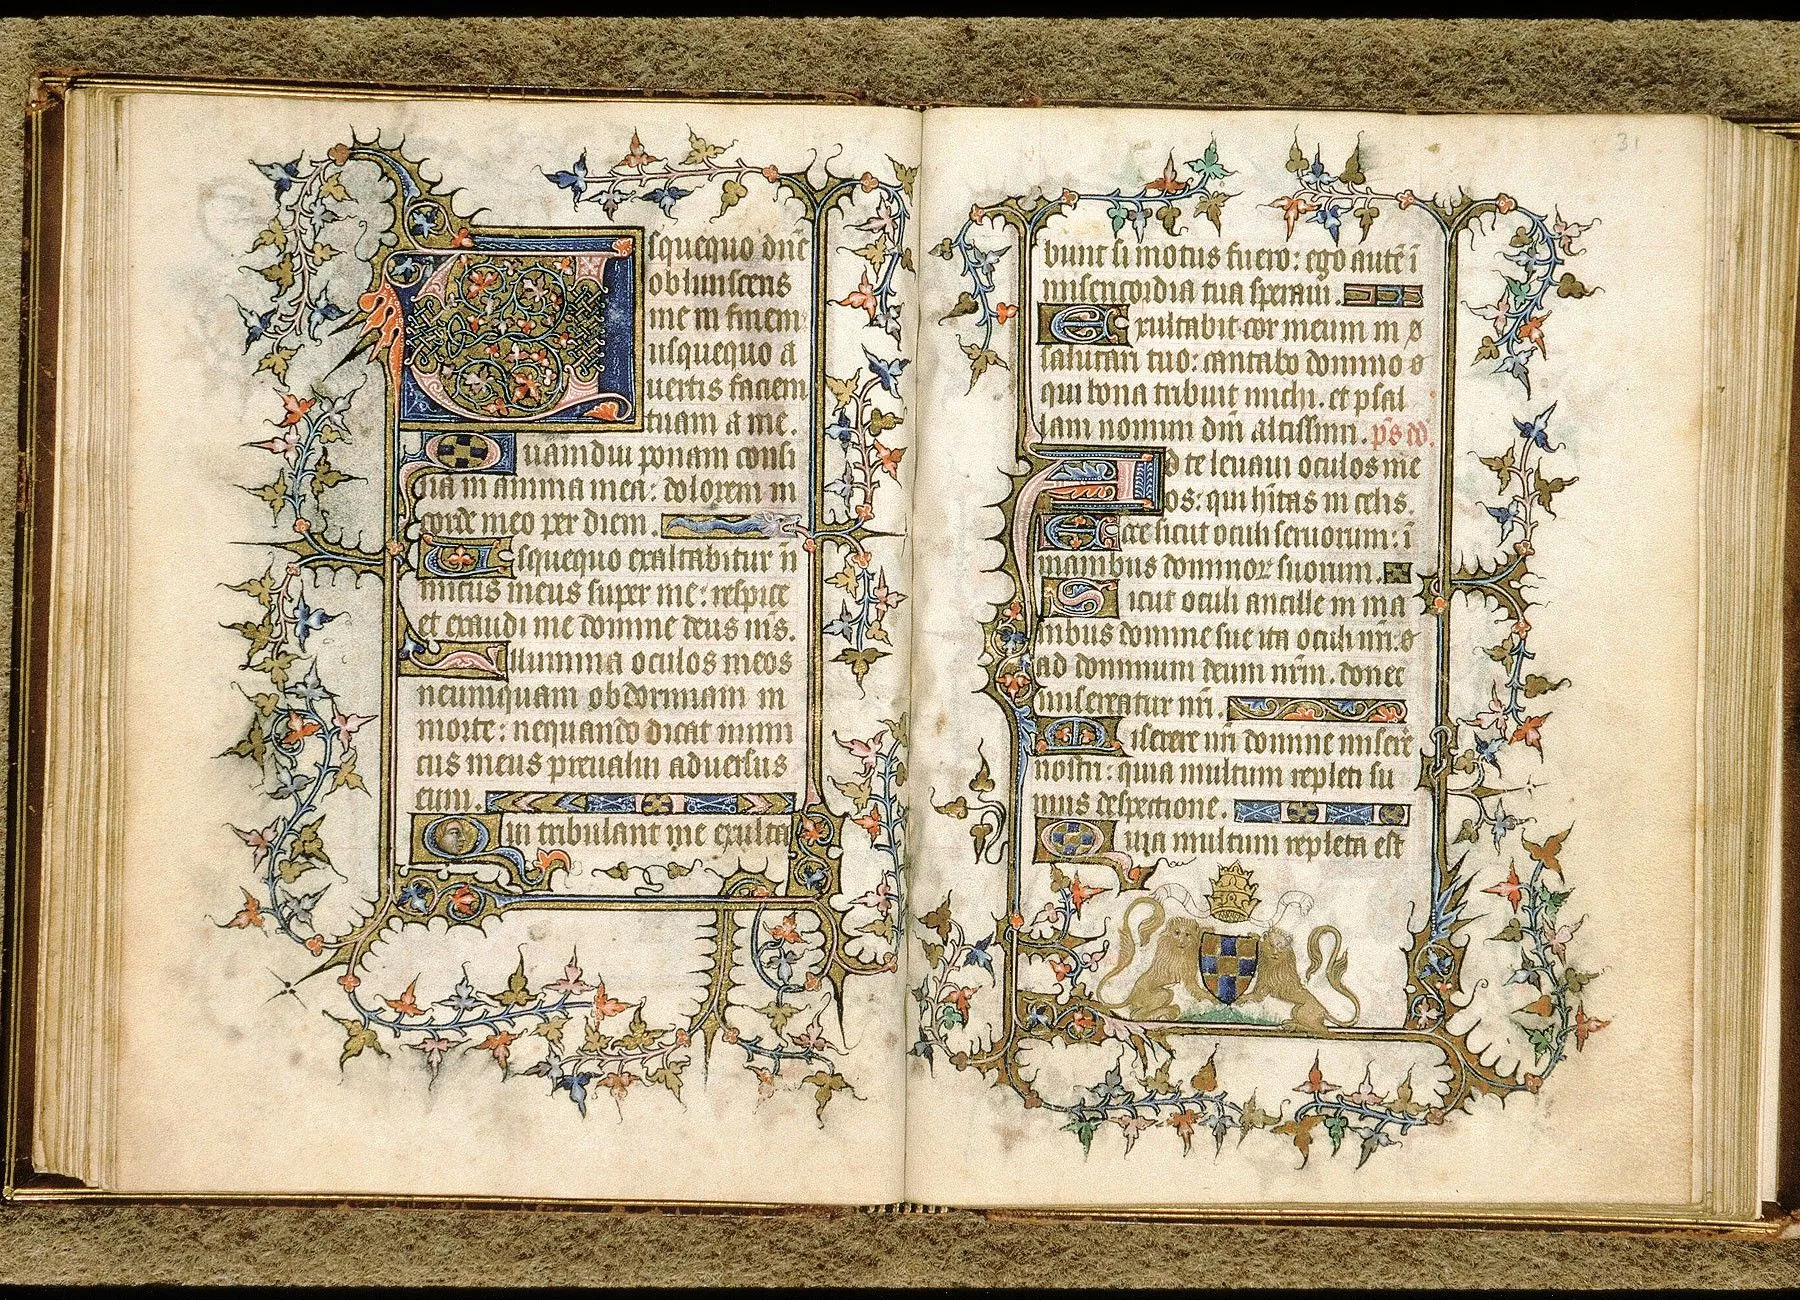 Usquequo dn̄e
obliuiscens
me in finem
usquequo a
uertis faciem
tuam a me.
Quamdiu ponam consi
lia in anima mea: dolorem in
corde meo per diem.
Usquequo exaltabitur in̄
imicus meus super me: respice
et exaudi me domine deus m̄s.
Illumina oculos meos
neumquam obdormiam in
morte: nequando dicat inimi
cus meus preualui aduersus
eum.
Qui tribulant me exulta
31
bunt si motus fuero: ego autē ī
misericordia tua speraui.
Exultabit cor meum in
salutari tuo: cantabo domino
qui bona tribuit michi. et psal
lam nomini dn̄i altissimi. p̄s dd̄.
Ad te leuaui oculos me
os: qui h̄itas in celis.
Ecce sicut oculi seruorum: ī
manibus dominoꝝ suorum.
Sicut oculi ancille in ma
nibus domine sue ita oculi nr̄i:
ad dominum deum nr̄m. donec
misereatur nr̄i.
Miserere nr̄i domine miserē
nostri: quia multum repleti su
mus despectione.
Quia multum repleta est